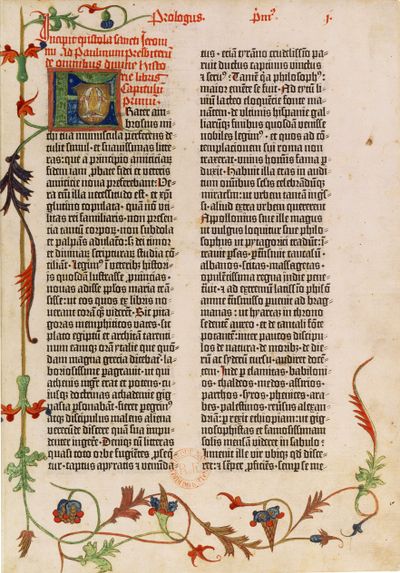 Prologus. Pm⁹ 1.
Incipit epistola sancti Iheroni-
mi ad Paulinum presbiterum
de omnibus divine historie
libris Capitulum
Primum
Frater am-
brosius mi-
chi tua munuscula preferens de-
tulit simul et suavissimas litte-
ras: que a principio amiciciarum
fidem iam probate fidei et veteris
amicicie nova preferebant: Ve-
ra enim illa necessitudo est · et xpristi
glutino copulata: quam non uti-
litas rei familiaris · non presen-
cia tantum corporum · non subdola
et palpans adulatio: sed dei timor
et divinarum scripturarum studia con-
ciliant. Legimus in veteribus histori-
is quosdam lustrasse provincias ·
novas adisse populos maria tran-
sisse: ut eos quos ex libris no-
verant coram quoque viderent: Sic pita-
goras memphiticos vates · sic
plato egiptum et architam tarenti-
num eamque oram ytalie que quon-
dam magna grecia dicebatur la-
boriosissime peragravit · ut qui
athenis magister erat et potens · cu-
iusque doctrinas achademie gig-
nasia personabant: fieret peregrinus
atque discipulus malens aliena
verecunde discere quam sua impu-
denter ingerere · Denique cum litteras
quasi toto orbe fugientes perseq-
tur · captus a pyratis et venunda
tus · etiam tyranno crudelissimo pa-
ruit ductus captivus vinctus
et servus: Tamen quia philosophus
maior emente se fuit · Ad tytum li-
vium lacteo eloquentie fonte ma-
nantem · de ultimis hispanie gal-
liarumque finibus quosdam venisse
nobiles legimus: et quos ad con-
templacionem sui roma non
traxerat · unius hominis fama per-
duxit · Habuit illa etas inaudi-
tum omnibus seculis celebrandumque
miraculum: ut urbem tantam ingres-
si · aliud extra urbem quererent ·
Appollonius sive ille magus
ut vulgus loquitur sive philo-
sophus ut pytagorici tradunt: in-
travit persas · pertransivit caucasum ·
albanos · scitas · massagetas ·
opulentissima regna indie pene-
travit · et ad extremum latissimo phison
amne transmisso pervenit ad brag-
manas: ut hyarcam in throno
sedentem aureo · et de tantali fonte
potantem: inter paucos discipu-
los de natura · de moribus · de die-
rum ac syderum cursu · audiret docen-
tem: Inde per elamitas · babiloni-
os · chaldeos · medos · assirios ·
parthos · syros · phenices · ara-
bes · palestinos · reversus alexan-
driam: perrexit ethiopiam: ut gig-
nosophistas et famosissimam
solis mensam videret in sabulo:
Invenit ille vir ubique quod disce-
ret: et semper proficiens · semper se me-